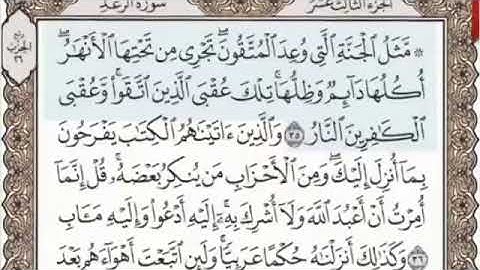 الجزء الثالث عشر
سورة الرعد
ربع
الحزب
٢٦
۞ مَّثَلُ ٱلْجَنَّةِ ٱلَّتِى وُعِدَ ٱلْمُتَّقُونَ ۖ تَجْرِى مِن تَحْتِهَا ٱلْأَنْهَٰرُ ۖ
أُكُلُهَا دَآئِمٌ وَظِلُّهَا ۚ تِلْكَ عُقْبَى ٱلَّذِينَ ٱتَّقَوا۟ ۖ وَّعُقْبَى
ٱلْكَٰفِرِينَ ٱلنَّارُ ٣٥ وَٱلَّذِينَ ءَاتَيْنَٰهُمُ ٱلْكِتَٰبَ يَفْرَحُونَ
بِمَآ أُنزِلَ إِلَيْكَ ۖ وَمِنَ ٱلْأَحْزَابِ مَن يُنكِرُ بَعْضَهُۥ ۚ قُلْ إِنَّمَآ
أُمِرْتُ أَنْ أَعْبُدَ ٱللَّهَ وَلَآ أُشْرِكَ بِهِۦٓ ۚ إِلَيْهِ أَدْعُوا۟ وَإِلَيْهِ مَـَٔابِ
٣٦ وَكَذَٰلِكَ أَنزَلْنَٰهُ حُكْمًا عَرَبِيًّا ۚ وَلَئِنِ ٱتَّبَعْتَ أَهْوَآءَهُم بَعْدَ